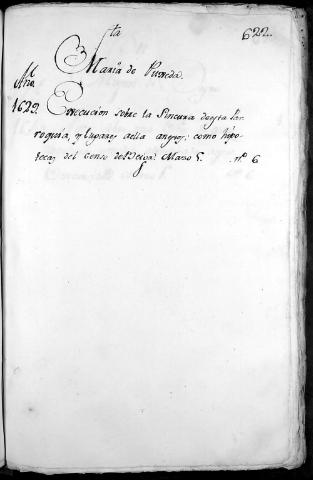 622.
Sta
Maria de Pureda.
Año
1629. Execucion sobre la Sincura desta Par
roquia, y lugares aella anexos: como hipo
tecas del Censo de Mazo 5. nº 6